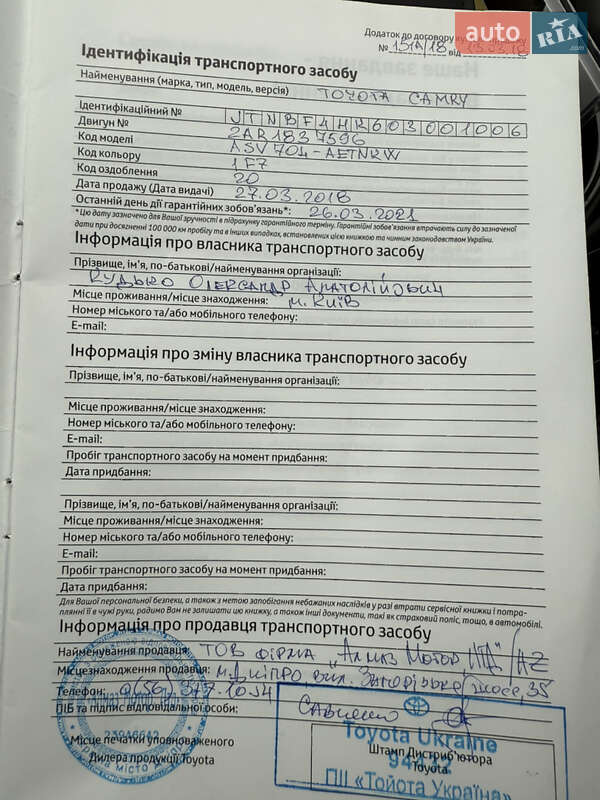 auto RIA
.com
Додаток до договору
№ 151А/18 від 03.18
Ідентифікація транспортного засобу
Найменування (марка, тип, модель, версія) TOYOTA CAMRY
Ідентифікаційний № JTNBF4HR603001006
Двигун № 2AR1837596
Код моделі ASV70L-AETNKW
Код кольору 1F7
Код оздоблення 20
Дата продажу (Дата видачі) 27.03.2018
Останній день дії гарантійних зобов'язань*: 26.03.2021
*Цю дату зазначено для Вашої зручності в підрахунку гарантійного терміну. Гарантійні зобов'язання втрачають силу до зазначеної
дати при досягненні 100 000 км пробігу та в інших випадках, встановлених цією книжкою та чинним законодавством України.
Інформація про власника транспортного засобу
Прізвище, ім'я, по-батькові/найменування організації:
Кудько Олександр Анатолійович
Місце проживання/місце знаходження: м. Київ
Номер міського та/або мобільного телефону:
E-mail:
Інформація про зміну власника транспортного засобу
Прізвище, ім'я, по-батькові/найменування організації:
Місце проживання/місце знаходження:
Номер міського та/або мобільного телефону:
E-mail:
Пробіг транспортного засобу на момент придбання:
Дата придбання:
Прізвище, ім'я, по-батькові/найменування організації:
Місце проживання/місце знаходження:
Номер міського та/або мобільного телефону:
E-mail:
Пробіг транспортного засобу на момент придбання:
Дата придбання:
Для Вашої персональної безпеки, а також з метою запобігання небажаних наслідків у разі втрати сервісної книжки і потра-
плянні її в чужі руки, радимо Вам не залишати цю книжку, а також інші документи, такі як страховий поліс, тощо, в автомобілі.
Інформація про продавця транспортного засобу
Найменування продавця: ТОВ фірма "Алмаз Мотор ЛТД" AZ
Місцезнаходження продавця: м. Дніпро, вул. Запорізьке шосе, 35
Телефон: (056) 377-10-34
ПІБ та підпис відповідальної особи: Савченко
Місце печатки уповноваженого
Дилера продукції Toyota
Toyota Ukraine
Штамп Дистриб'ютора
Toyota
ПІІ «Тойота Україна»